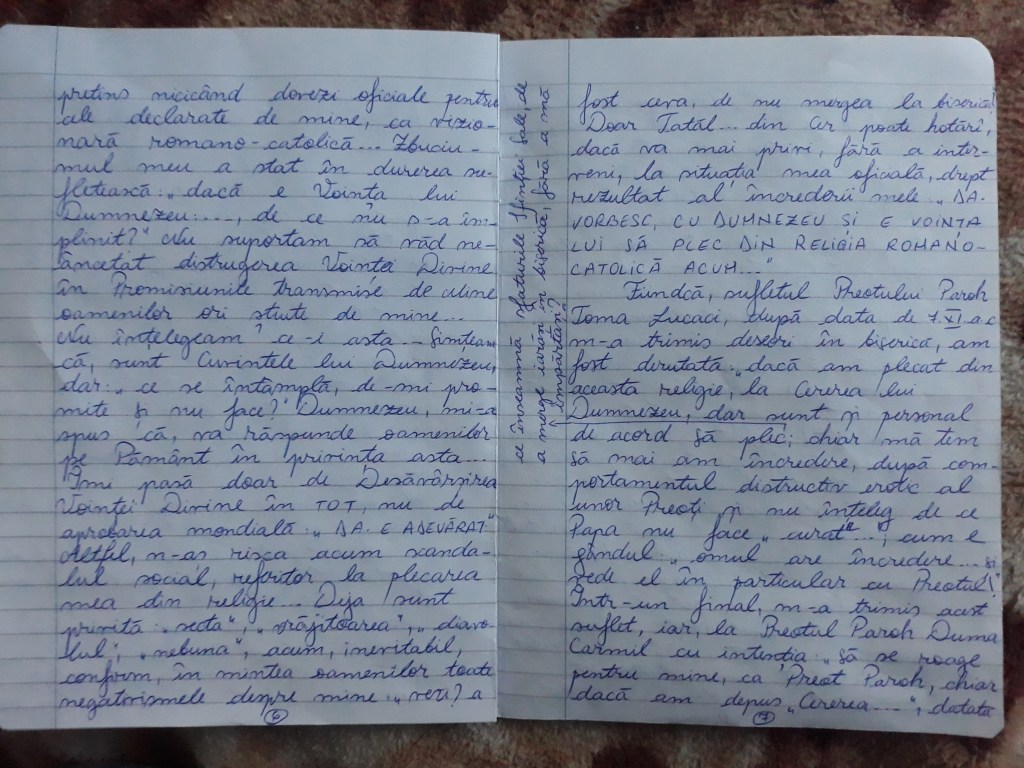 pretins nicicând dovezi oficiale pentru
ale declarate de mine, ca vizio-
nară romano-catolică... Zbuciu-
mul meu a stat în durerea su-
fletească: „dacă e Voința lui
Dumnezeu:..., de ce nu s-a îm-
plinit?" Nu suportam să văd ne-
âncetat distrugerea Voinței Divine
în Promisiunile transmise de mine
oamenilor ori știute de mine...
Nu înțelegeam ce-i asta... Simțeam
că, sunt Cuvintele lui Dumnezeu,
dar: „ce se întâmplă, de-mi pro-
mite și nu face?" Dumnezeu, mi-a
spus că, va răspunde oamenilor
pe Pământ în privința asta...
Îmi pasă doar de Desăvârșirea
Voinței Divine în TOT, nu de
aprobarea mondială: „DA. E ADEVĂRAT."
Altfel, n-aș risca acum scanda-
lul social, referitor la plecarea
mea din religie... Deja sunt
privită: „secta", „vrăjitoarea", „diavo-
lul", „nebuna", acum, inevitabil,
confirm, în mintea oamenilor toate
negativismele despre mine: „vezi? a
6
ce înseamnă sfaturile Sfinției Sale, de
a merge iarăși în biserică, fără a mă
împărtăși?
fost ceva, de nu mergea la biserică!"
Doar Tatăl... din Cer poate hotărî,
dacă va mai privi, fără a inter-
veni, la situația mea oficială, drept
rezultat al încrederii mele: „DA.
VORBESC, CU DUMNEZEU ȘI E VOINȚA
LUI SĂ PLEC DIN RELIGIA ROMANO-
CATOLICĂ ACUM..."
Fiindcă, sufletul Preotului Paroh
Toma Lucaci, după data de 7.XI a.c
m-a trimis deseori în biserică, am
fost derutată: „dacă am plecat din
aceasta religie, la Cererea lui
Dumnezeu, dar sunt și personal
de acord să plec; chiar mă tem
să mai am încredere, după com-
portamentul distructiv erotic al
unor Preoți și nu înțeleg de ce
Papa nu face „curat"...; cum e
gândul: „omul are încredere... și
vede el în particular cu Preotul!"
Într-un final, m-a trimis acest
suflet, iar, la Preotul Paroh Duma
Carmil cu intenția: „Să se roage
pentru mine, ca Preot Paroh, chiar
dacă am depus „Cererea...", datată
7